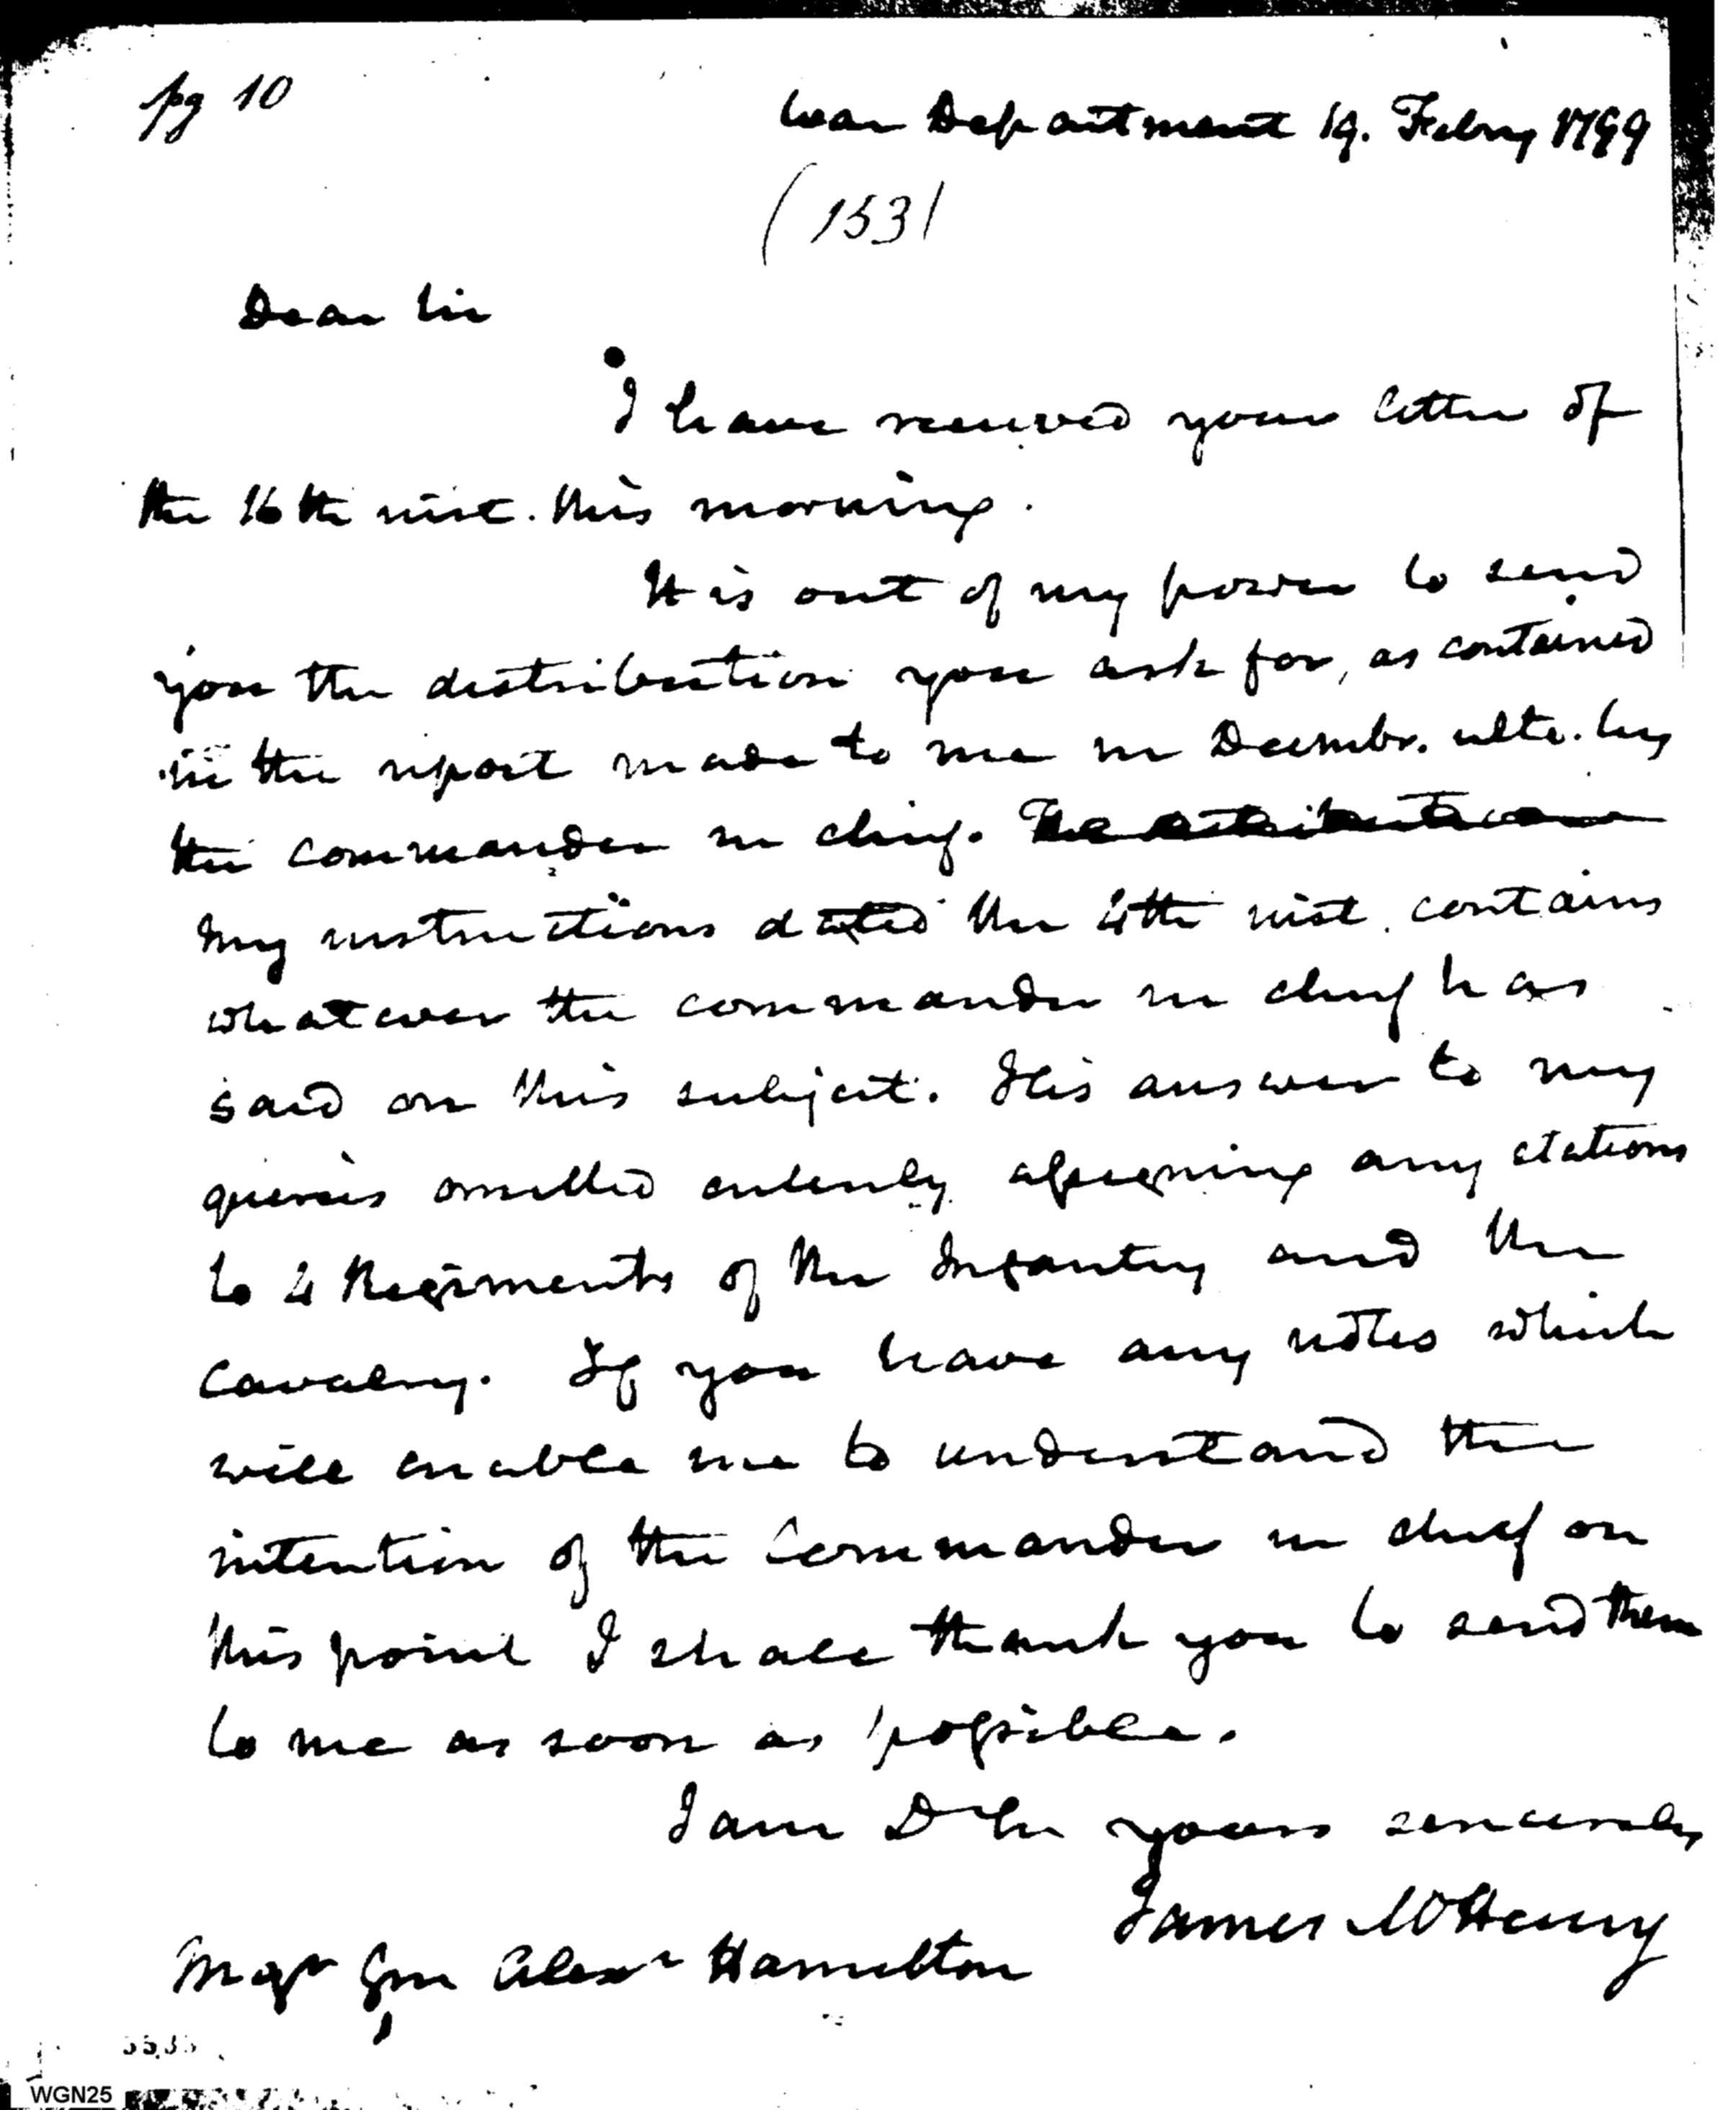 pg 10
War Department 19. Febry 1799
(153)
Dear Sir
I have received your letter of
the 16th inst. this morning.
It is out of my power to send
you the distribution you ask for, as contained
in the report made to me in Decembr. ulto. by
the commander in chief. The distribution
My instructions dated the 4th inst. contains
whatever the commander in chief has
said on this subject. His answer to my
queries omitted entirely assigning any stations
to 4 Regiments of the Infantry and the
cavalry. If you have any notes which
will enable me to understand the
intention of the Commander in chief on
this point I shall thank you to send them
to me as soon as possible.
I am D Sir yours sincerely
James McHenry
Majr Gen Alexr Hamilton
WGN25